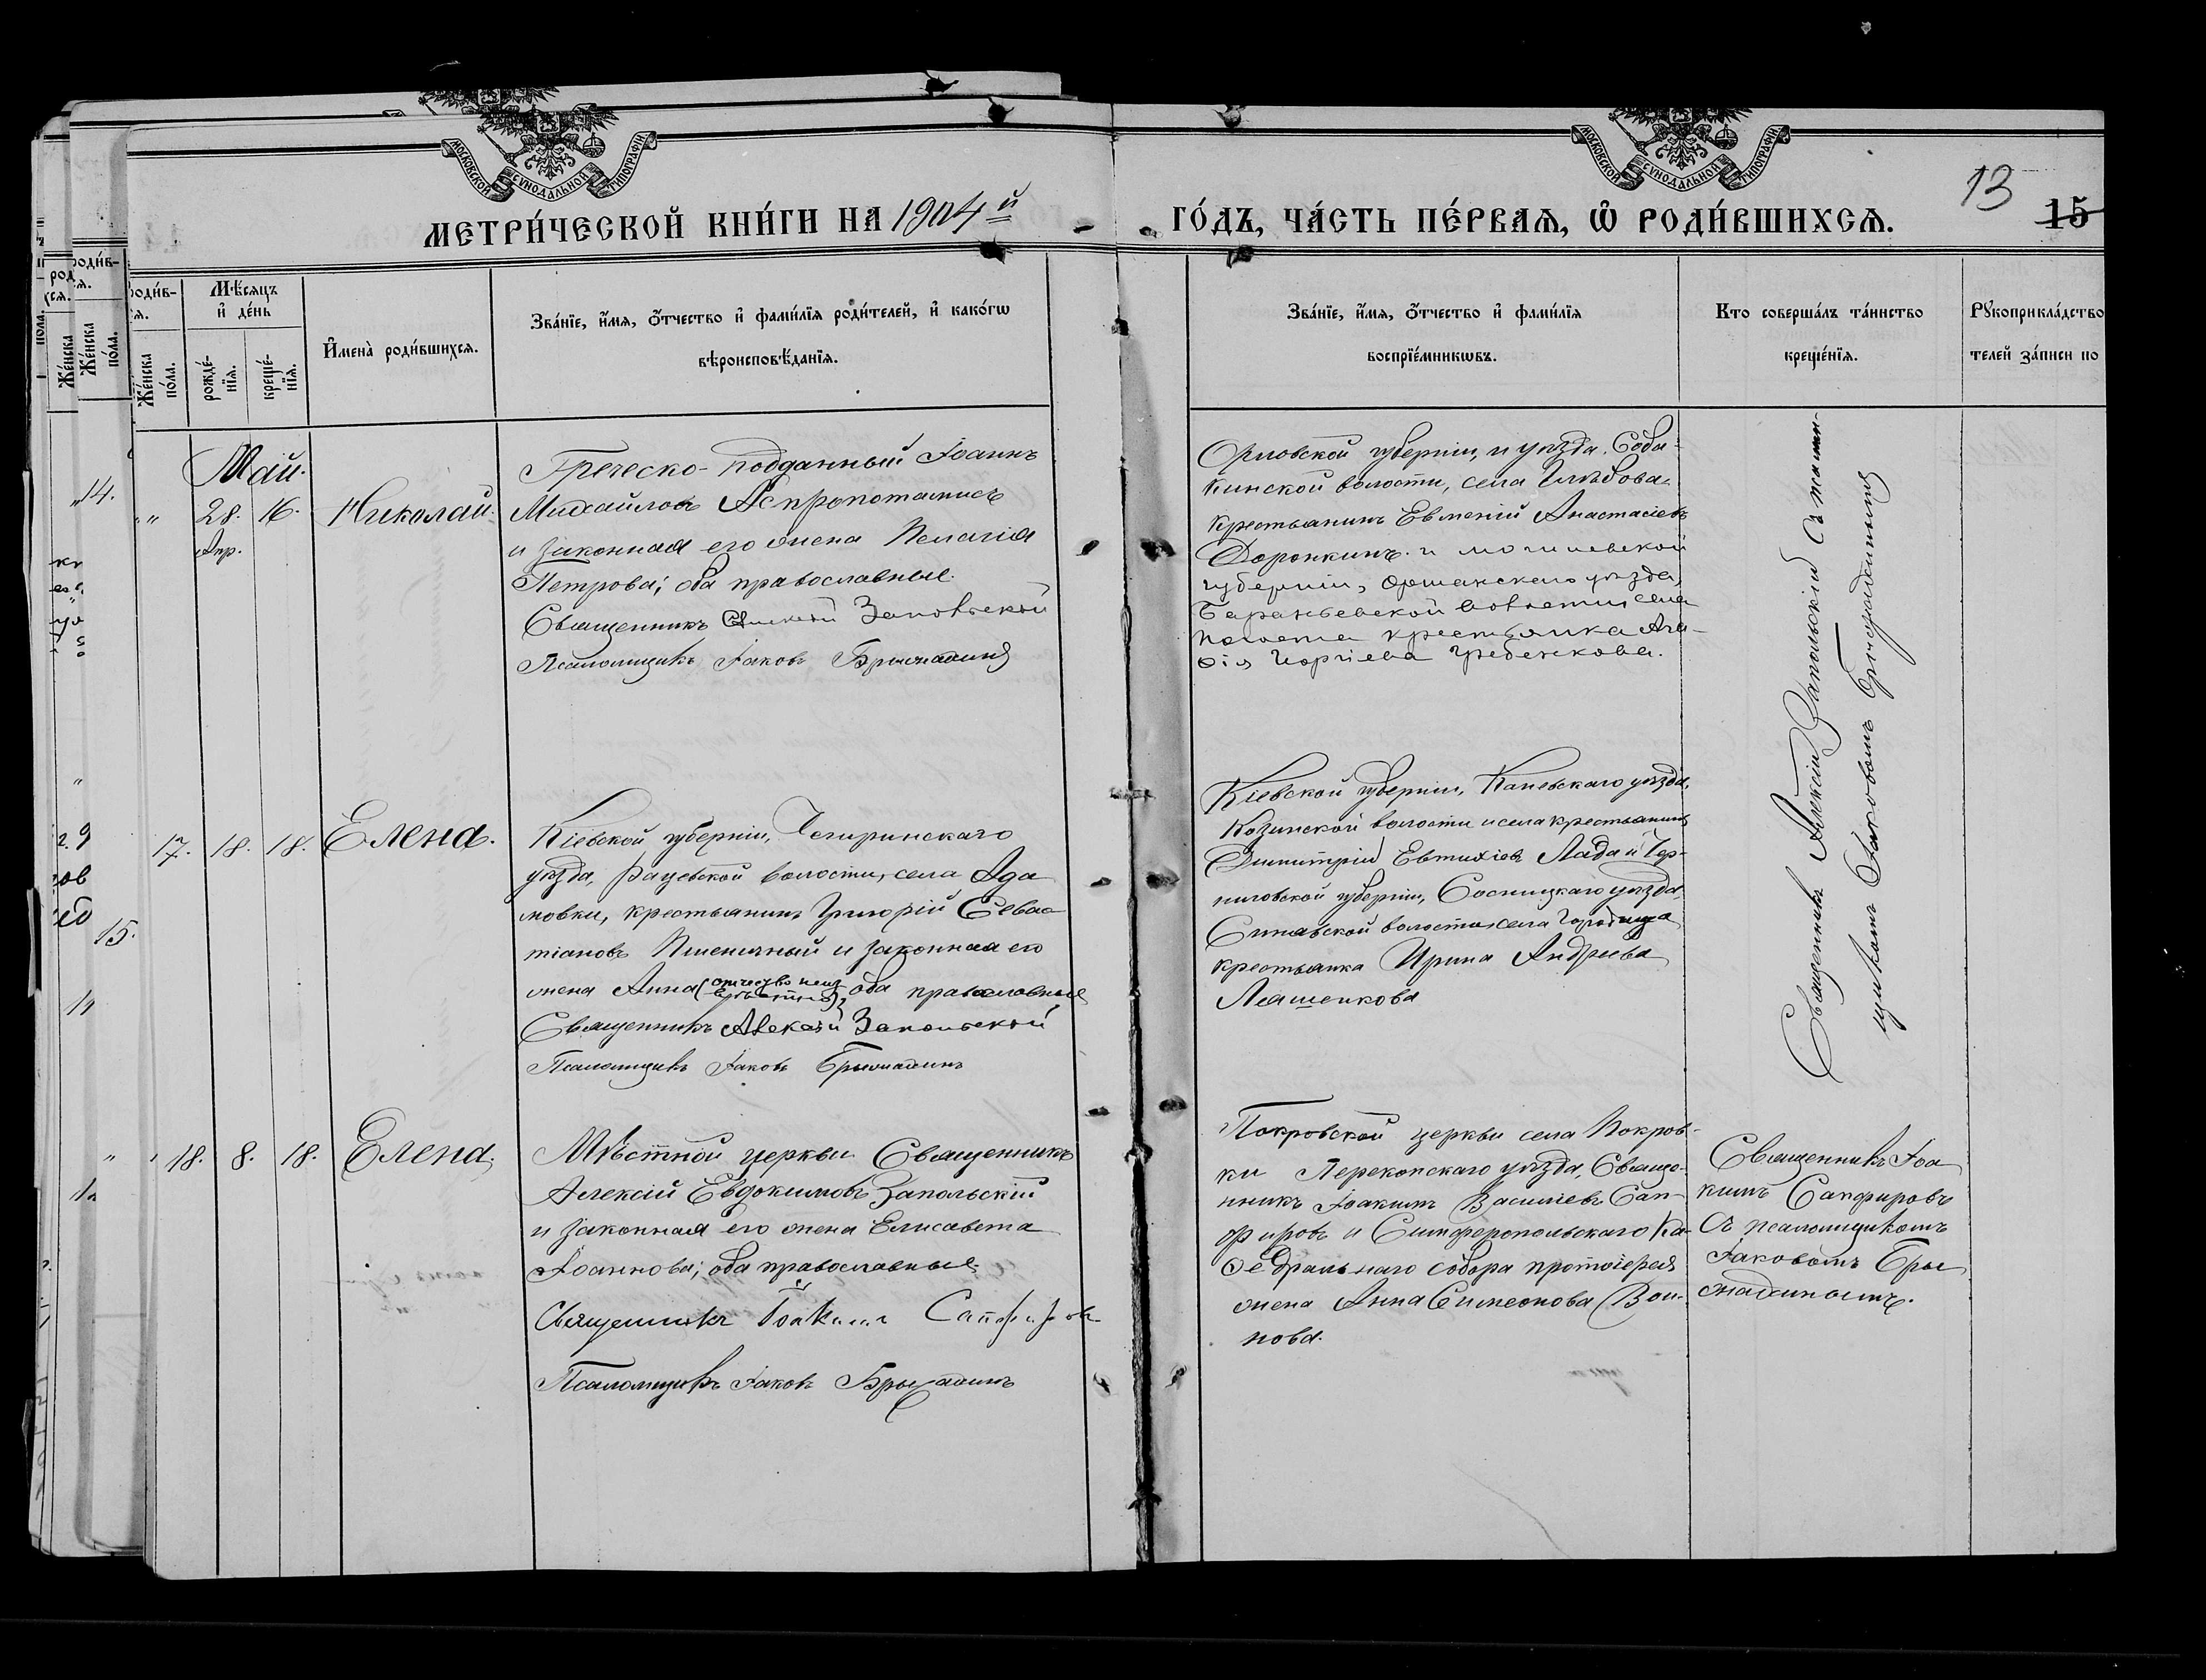 МОСКОВСКОЙ СѴНОДАЛЬНОЙ ТИПОГРАФІИ
МОСКОВСКОЙ СѴНОДАЛЬНОЙ ТИПОГРАФІИ
МЕТРИ́ЧЕСКОЙ КНИ́ГИ НА 1904й ГО́ДЪ, ЧА́СТЬ ПЕ́РВАѦ, Ѽ РОДИ́ВШИХСѦ.
13
15
роди́в-
ѧ.
Же́нска
по́ла.
Мѣ́сѧцъ
и҆ де́нь
рожде́-
нїѧ.
креще́-
нїѧ.
И҆мена̀ роди́вшихсѧ.
Зва́нїе, и҆́мѧ, ѻ҆́тчество и҆ фами́лїѧ роди́телей, и҆ како́гѡ
вѣроисповѣ́данїѧ.
Зва́нїе, и҆́мѧ, ѻ҆́тчество и҆ фами́лїѧ
воспрїе́мникѡвъ.
Кто соверша́лъ та́инство
креще́нїѧ.
Рꙋкоприкла́дство
телей за́писи по
Май.
" 28. 16. Николай.
Апр.
Греческо-подданный Іоаннъ
Михайловъ Аспропотамисъ
и законная его жена Пелагія
Петрова; оба православные.
Священникъ Алексій Запольскій
Псаломщикъ Іаковъ Брыжадинъ
Орловской губерніи, и уѣзда, Соба-
кинской волости, села Глѣбова
крестьянинъ Евменій Анастасіевъ
Доронкинъ и могилевской
губерніи, Оршанскаго уѣзда,
Бараньевской волости, села
крестьянка Ага-
ѳія Георгіева Гребенкова.
Священникъ Алексій Запольскій съ псаломщ-
щикомъ Іаковомъ Брыжадинымъ
17. 18. 18. Елена.
Кіевской губерніи, Чегиринскаго
уѣзда, Рацевской волости, села Ада
мовки, крестьянинъ Григорій Севас
тіановъ Пшеничный и законная его
жена Анна (отчество неиз
вѣстно), оба православные
Священникъ Алексій Запольскій
Псаломщикъ Іаковъ Брыжадинъ
Кіевской губерніи, Каневскаго уѣзда,
Козинской волости и села крестьянинъ
Димитрій Евтихіевъ Лада и Чер-
ниговской губерніи, Сосницкаго уѣзда,
Синявской волости села Городища
крестьянка Ирина Андреева
Ляшенкова
18. 8. 18. Елена.
Мѣстной церкви Священникъ
Алексій Евдокимовъ Запольскій
и законная его жена Елисавета
Іоаннова; оба православные.
Священникъ Іоакимъ Сапфировъ
Псаломщикъ Іаковъ Брыжадинъ
Покровской церкви села Покров-
ки Перекопскаго уѣзда, Свяще-
нникъ Іоакимъ Василіевъ Сап-
фировъ и Симферопольскаго Ка-
ѳедральнаго собора протоіерея
жена Анна Симеонова Вои-
нова.
Священникъ Іоа
кимъ Сапфировъ
съ псаломщикомъ
Іаковомъ Бры
жадинымъ.